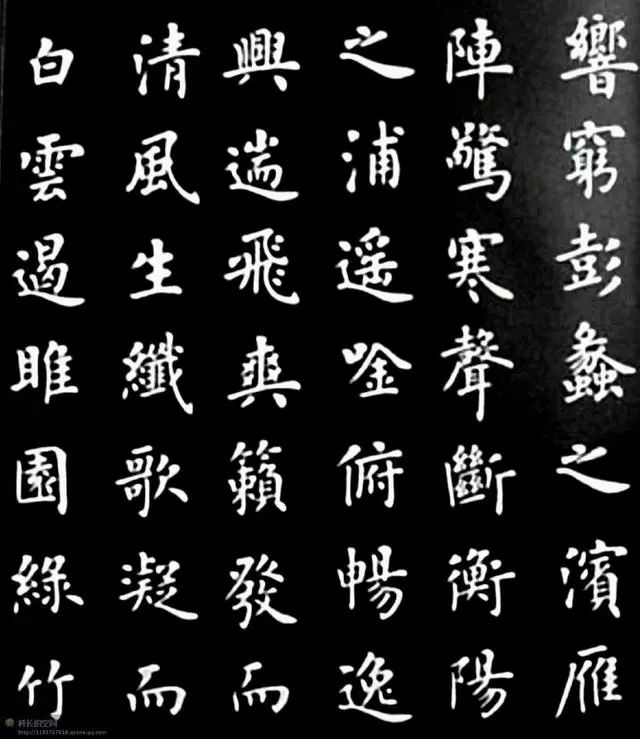 響窮彭蠡之濱雁
陣驚寒聲斷衡陽
之浦遥唫俯暢逸
興遄飛爽籟發而
清風生纖歌凝而
白雲遏睢園綠竹
长的空间
http://1193767618.qzone.qq.com